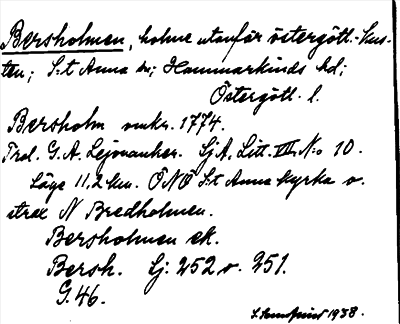 Bersholmen, holme utanför östergötl. kus-
ten; S:t Anna sn; Hammarkinds hd;
Östergötl. l.
Bersholm omkr. 1774.
Trol. G. A. Lejonanker. SjA, Litt. VII, N:o 10.
Läge 11,2 km. ÖNÖ S:t Anna kyrka o.
strax N Bredholmen.
Bersholmen ek.
Bersh. Sj: 252 o. 251.
G. 46.
1938.